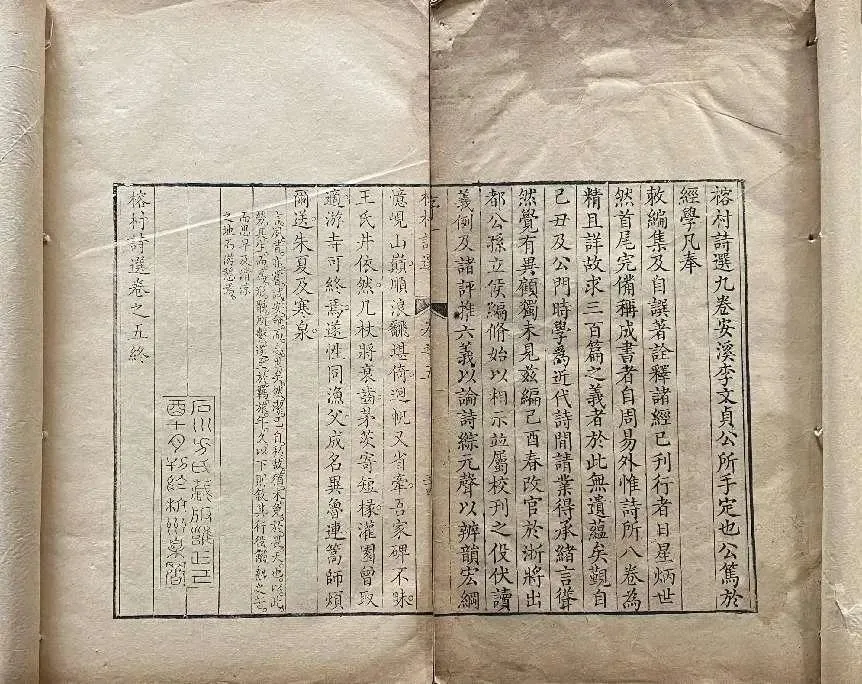 榕村詩選九卷安溪李文貞公所手定也公篤於
經學凡奉
敕編集及自譔著詮釋諸經已刊行者日星炳世
然首尾完備稱成書者自周易外惟詩所八卷為
精且詳故求三百篇之義者於此無遺蘊矣覲自
己丑及公門時學爲近代詩閒請業得承緒言聳
然覺有異顧獨未見茲編己酉春改官於浙將出
都公孫立侯編脩始以相示並屬校刊之役伏讀
義例及諸評推六義以論詩綜元聲以辨韻宏綱
榕村詩選 卷之五
憶峴山巔順浪翻堪倚迴帆又省牽吾家碑不昧
王氏井依然几杖將衰齒茅茨寄短椽灌園曾取
適游寺可終焉遂性同漁父成名異魯連篙師煩
爾送朱夏及寒泉
而思卑
之地而遊憩焉
榕村詩選卷之五終
石川方氏藏版雍正己
酉十月刊於